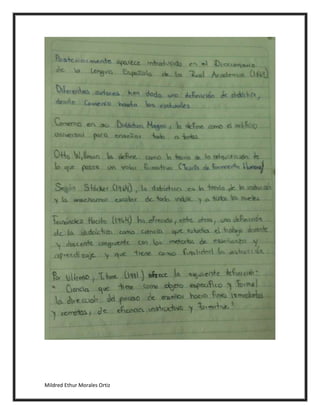 Posteriormente aparece introducido en el Diccionario
de la Lengua Española de la Real Academia
Diferentes autores han dado una definición de didáctica,
desde Comenio hasta los actuales
Comenio en su Didáctica Magna, la define como el artificio
universal para enseñar todo a todos
Otto Willman la define como la teoría de la adquisición de
lo que posee un valor formativo
Según Stöcker (1964), la didáctica es la teoría de la instrucción
y la enseñanza escolar de toda índole y a todos los niveles
Fernández Huerta (1964) ha ofrecido, entre otras, una definición
de la didáctica como ciencia que estudia el trabajo docente
y discente congruente con los métodos de enseñanza y
aprendizaje y que tiene como finalidad la instrucción
Por último, Titone (1981) ofrece la siguiente definición:
" Ciencia que tiene como objeto específico y formal
la dirección del proceso de enseñar hacia fines inmediatos
y remotos, de eficacia instructiva y formativa"
Mildred Ethur Morales Ortiz